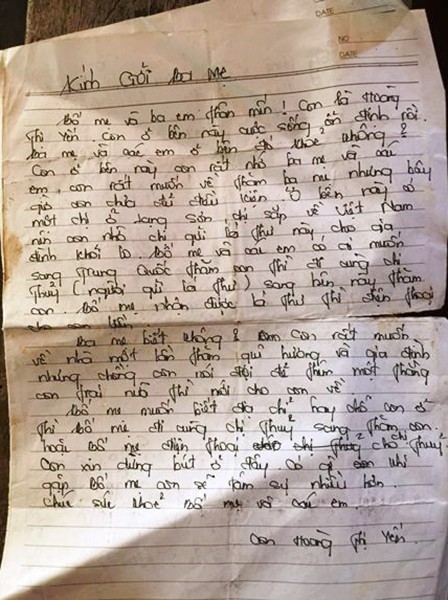 DATE
NO
DATE
Kính Gởi ba Mẹ
Bố mẹ và ba em thân mến! Con là Hoàng
Thị Yến. Con ở bên này cuộc sống ổn định rồi.
Ba mẹ và các em ở bên đó khoẻ không?
Con ở bên này con rất nhớ ba mẹ và các
em, con rất muốn về thăm ba mẹ nhưng bây
giờ con chưa đủ điều kiện. Ở bên này có
một chị ở Lạng Sơn chị sắp về Việt Nam
nên con nhờ chị gửi lá thư này cho gia
đình khỏi lo. Bố mẹ và các em có ai muốn
sang Trung Quốc thăm con thì đi cùng chị
Thuỷ (người gửi lá thư) sang bên này thăm
con. Bố mẹ nhận được lá thư thì điện thoại
cho con liền.
Ba mẹ biết không? Con rất muốn
về nhà một lần thăm quê hương và gia đình
nhưng chồng con nói đợi đẻ thêm một thằng
con trai nữa thì mới cho con về.
Bố mẹ muốn biết địa chỉ hay chỗ con ở
thì bố mẹ đi cùng chị Thuỷ sang thăm con.
hoặc bố mẹ điện thoại cho chị Thuỷ.
Con xin dừng bút ở đây có gì khi
gặp bố mẹ con sẽ tâm sự nhiều hơn.
Chúc sức khoẻ bố mẹ và các em.
Con Hoàng Thị Yến.